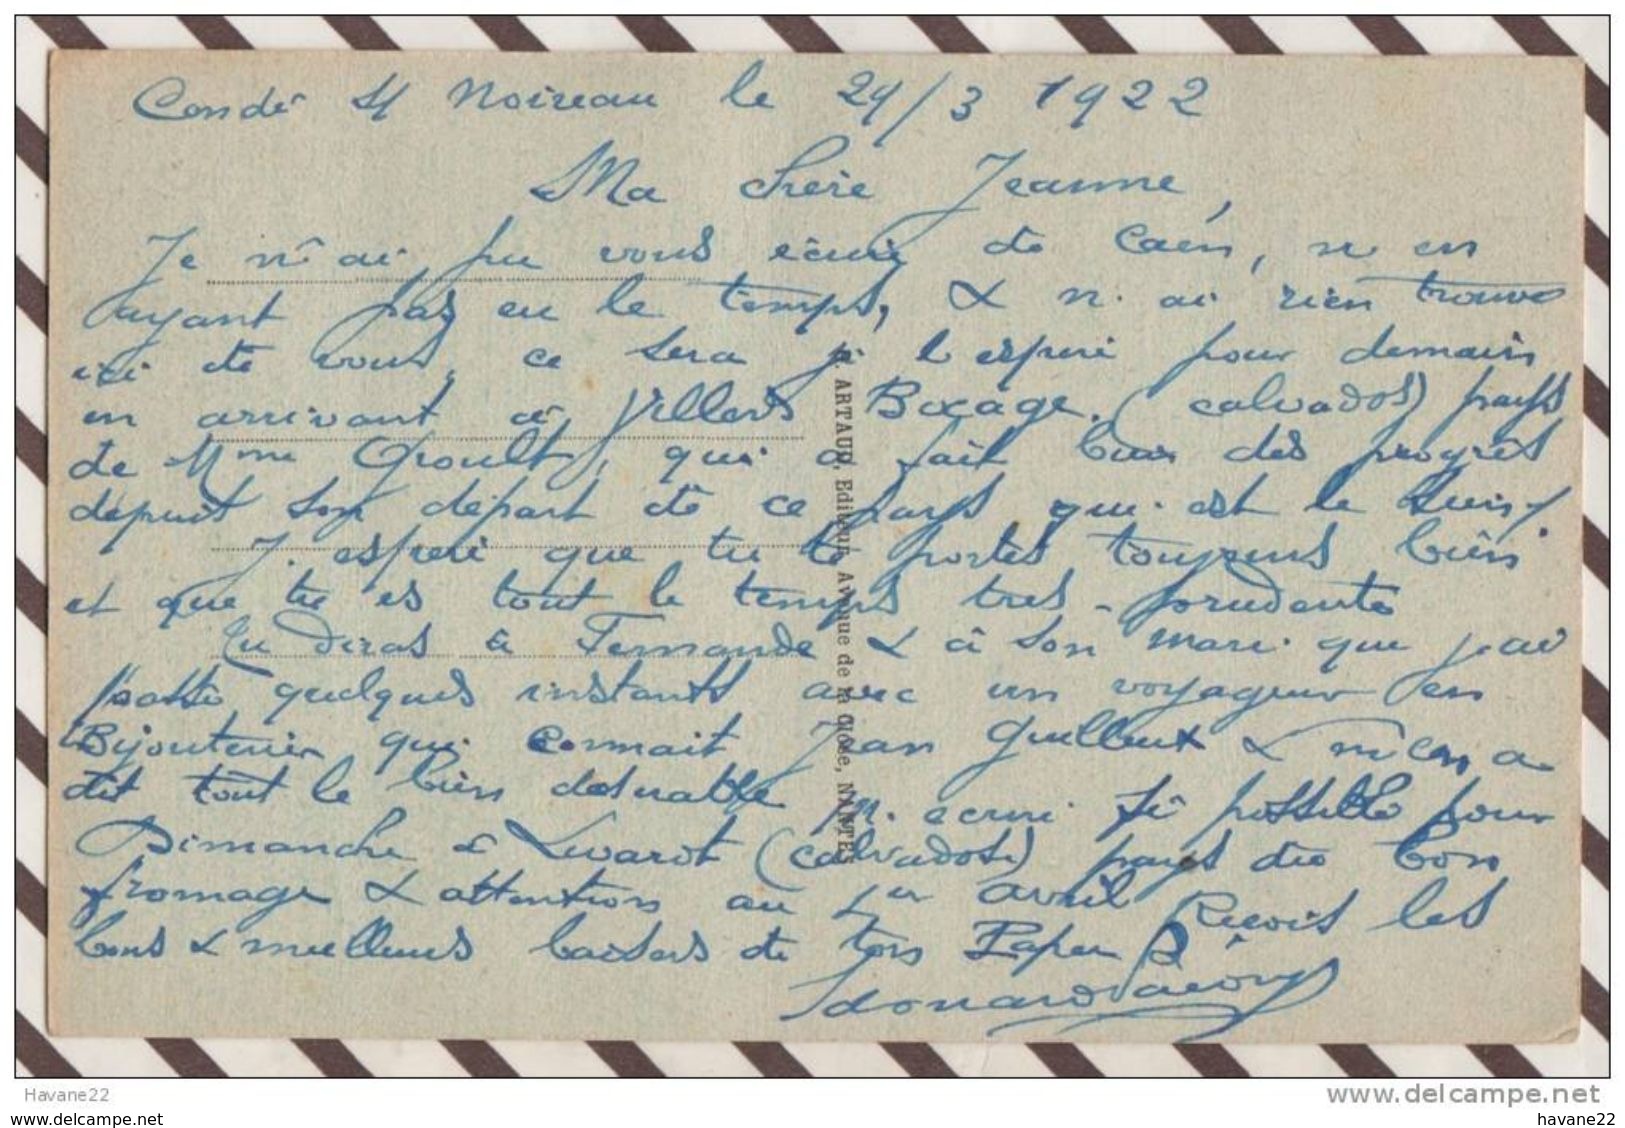 Condé s/ Noireau le 29/3 1922
Ma chère Jeanne,
Je n'ai pu vous écrire de Caen, n'en
ayant pas eu le temps, & n'ai rien trouvé
ici de vous, ce sera je l'espère pour demain
en arrivant à Villers Bocage (calvados) pays
de Mme Groult, qui a fait bien des progrès
depuis son départ de ce pays qui est le sien.
J'espère que tu te portes toujours bien
et que tu es tout le temps très prudente
Tu diras à Fernande & à son mari que j'ai
passé quelques instants avec un voyageur en
Bijouterie qui connait Jean Guilleux & m'en a
dit tout le bien désirable m'écrire si possible pour
Dimanche à Livarot (calvados) pays du bon
fromage & attention au 1er avril Reçois les
bons & meilleurs baisers de ton Papa
Edouard
R. ARTAUD, Editeur, Avenue de la Close, NANTES
Havane22
www.delcampe.net
havane22
havane22